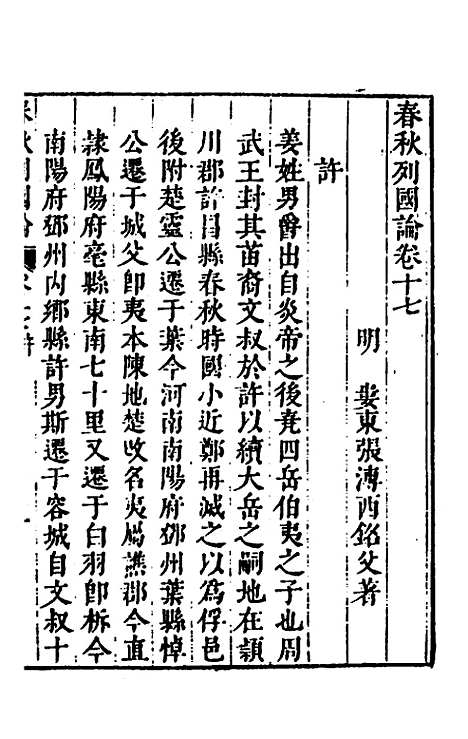 春秋列國論卷十七
明　婁東張溥西銘父著
許
姜姓男爵出自炎帝之後堯四岳伯夷之子也周
武王封其苗裔文叔於許以續大岳之嗣地在潁
川郡許昌縣春秋時國小近鄭再滅之以爲俘邑
後附楚靈公遷于葉今河南南陽府鄧州葉縣悼
公遷于城父卽夷本陳地楚改名夷屬譙郡今直
隸鳳陽府亳縣東南七十里又遷于白羽卽析今
南陽府鄧州內鄉縣許男斯遷于容城自文叔十